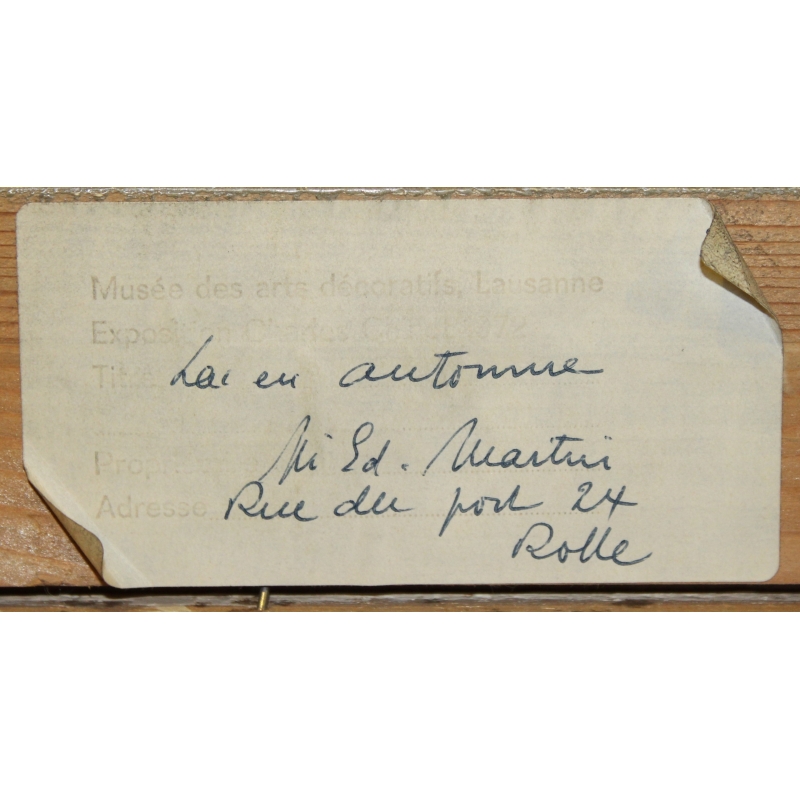 Musée des arts décoratifs, Lausanne
Exposition Charles 1972
Titre Lac en automne
Propri Mr Ed. Martin
Adresse Rue du port 24
Rolle